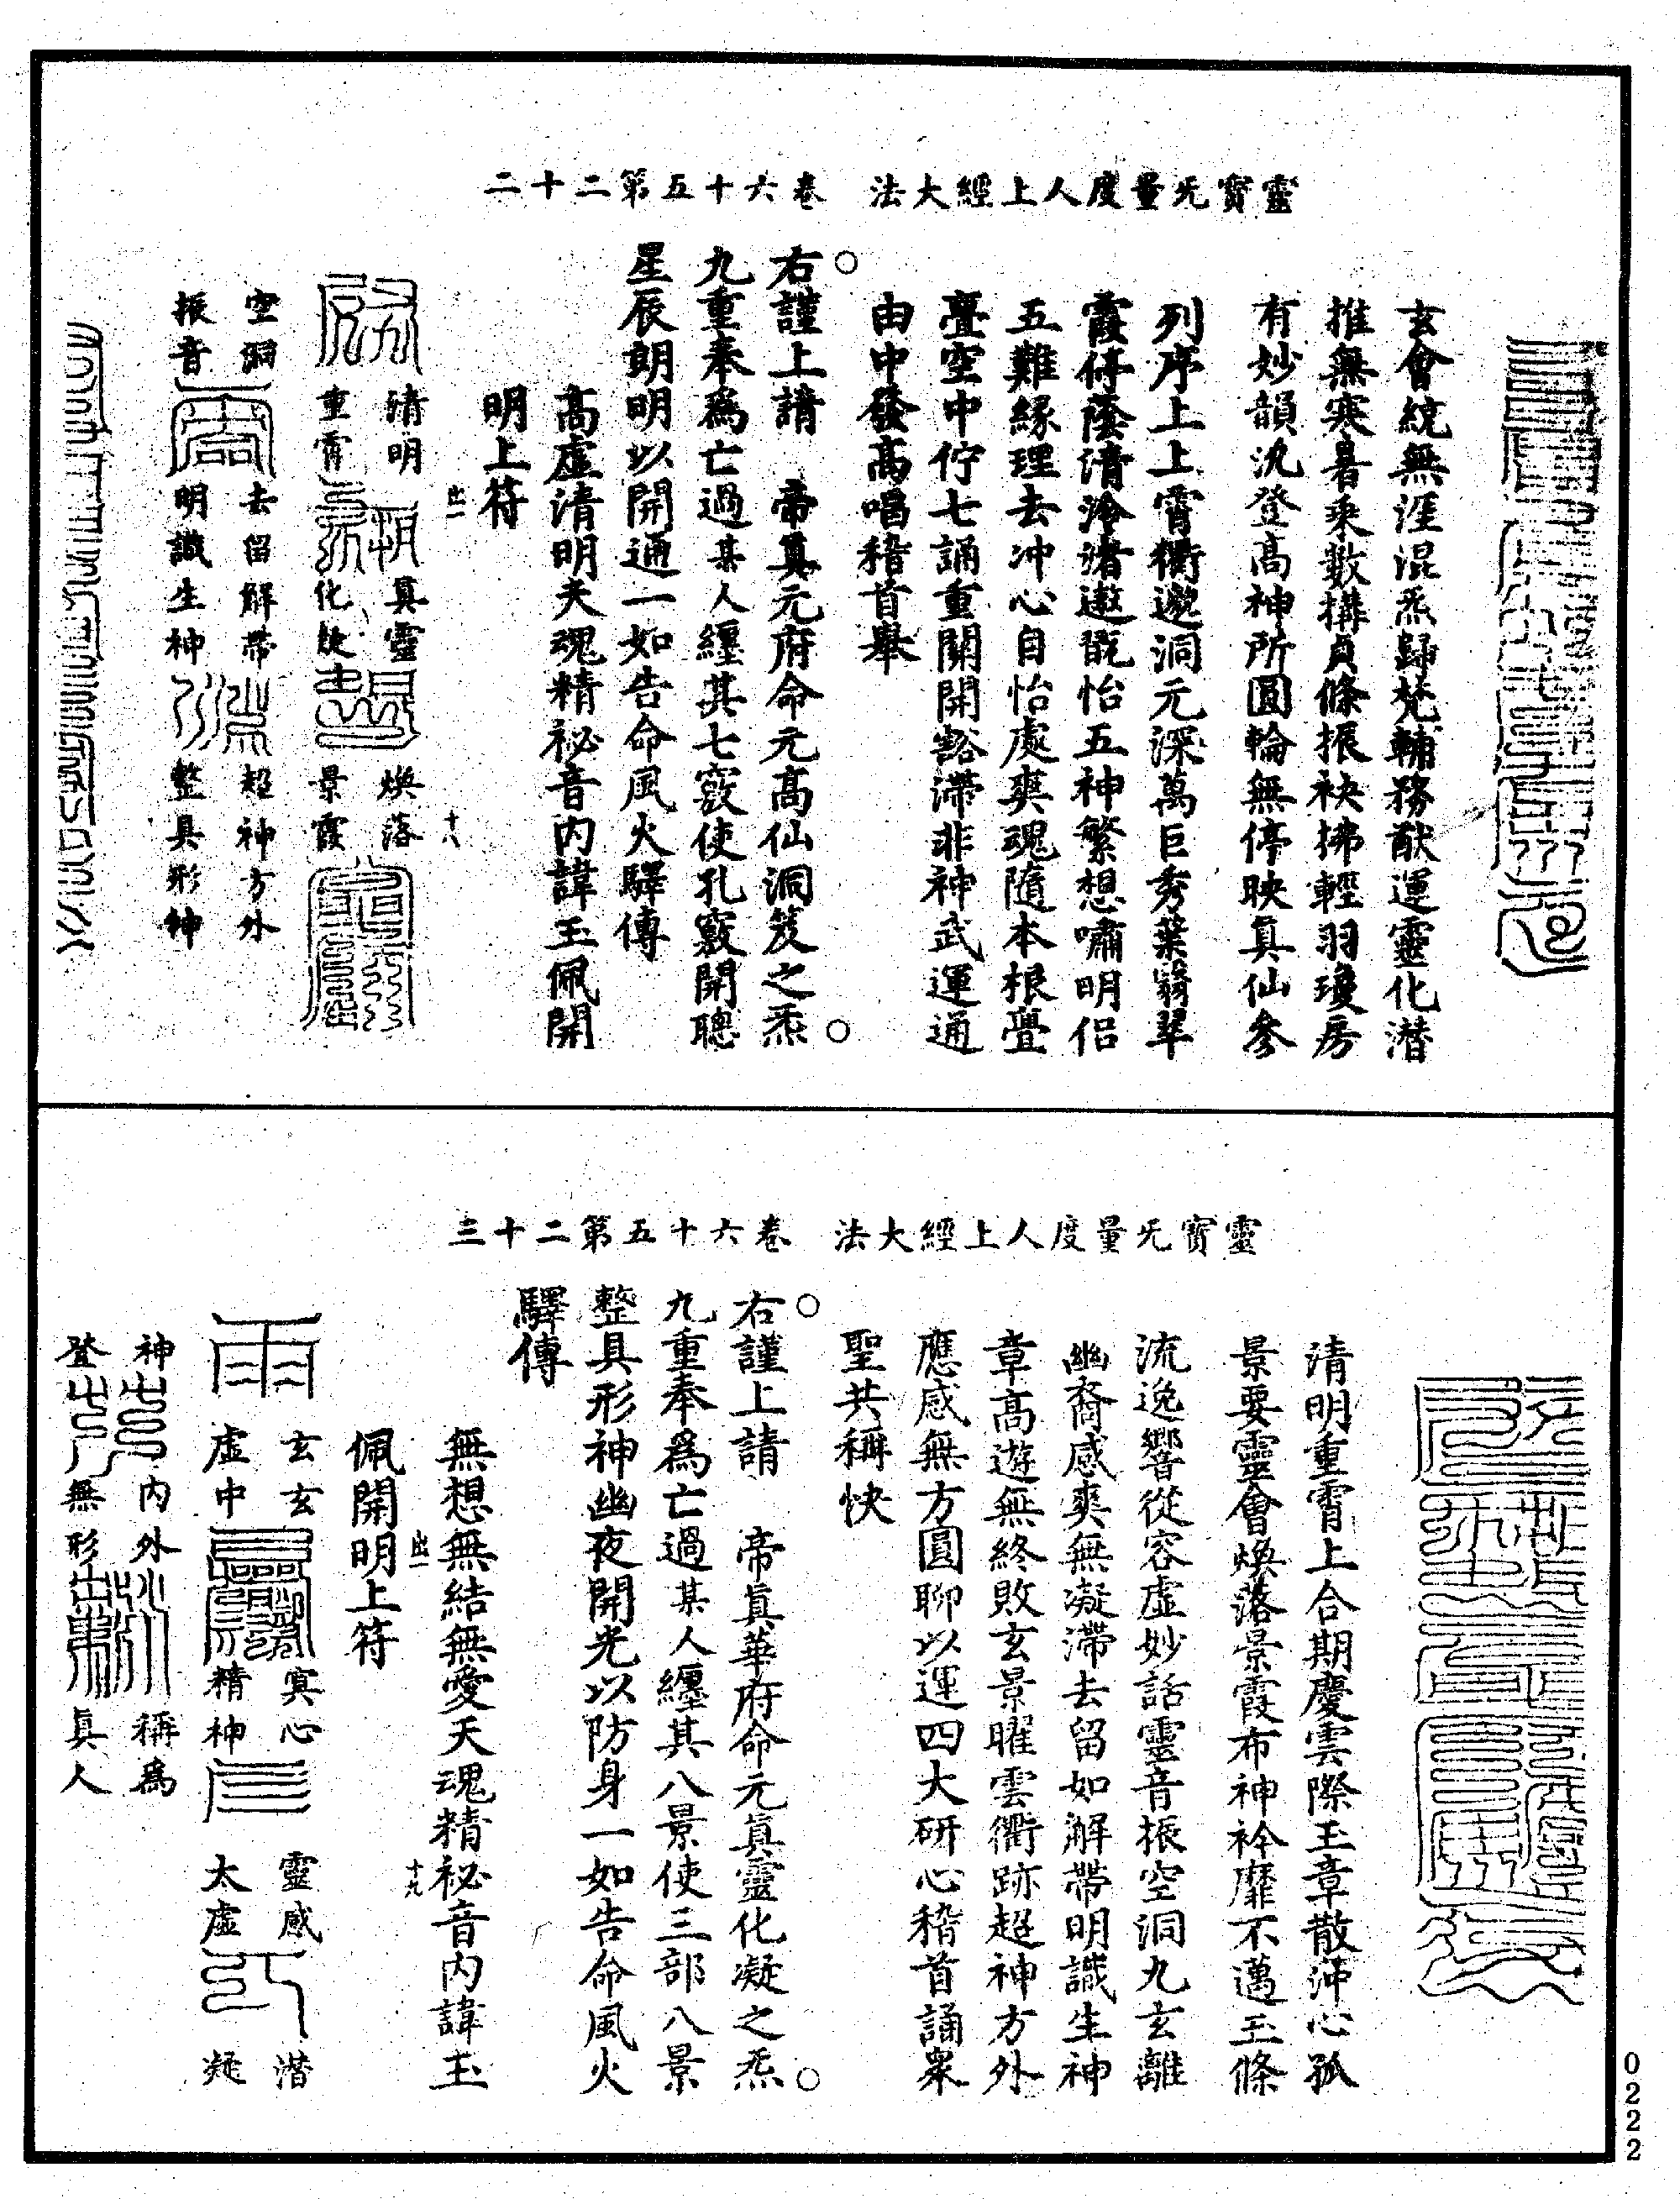 靈寶无量度人上經大法　卷六十五第二十二
玄會統無涯混炁歸梵輔務猷運靈化潛
推無寒暑乘數搆貞條振袂拂輕羽瓊房
有妙韻汎登高神所圓輪無停映真仙參
列序上上霄衢邈洞元深萬巨秀葉翳翠
霞停蔭清泠渚遨翫怡五神繁想嘯明侶
五難緣理去冲心自怡處爽魂隨本根亹
亹空中佇七誦重關開豁滯非神武運通
由中發高唱稽首舉
○右謹上請　帝真元府命元高仙洞笈之炁○
九重奉為亡過某人纏其七竅使孔竅開聰
星辰朗明以開通一如告命風火驛傳
高虛清明天魂精祕音內諱玉佩開
明上符
出二　十八
清明　真靈　煥落
重霄　化　景霞
空洞　去留解帶　超神方外
振音　明識生神　整具形神
靈寶无量度人上經大法　卷六十五第二十三
清明重霄上合期慶雲際玉章散沖心孤
景要靈會煥落景霞布神衿靡不邁玉條
流逸響從容虛妙話靈音振空洞九玄離
幽裔感爽無凝滯去留如解帶明識生神
章高遊無終敗玄景曜雲衢跡超神方外
應感無方圓聊以運四大研心稽首誦眾
聖共稱快
○右謹上請　帝真華府命元真靈化凝之炁○
九重奉為亡過某人纏其八景使三部八景
整具形神幽夜開光以防身一如告命風火
驛傳
無想無結無愛天魂精祕音內諱玉
佩開明上符
出一　十九
玄玄　冥心　靈感　潛
虛中　精神　太虛　凝
神　內外　稱為
登　無形　真人
0222